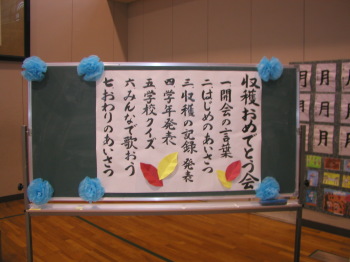 収穫おめでとう会
一開会の言葉
二はじめのあいさつ
三収穫の記録発表
四学年発表
五学校クイズ
六みんなで歌おう
七おわりのあいさつ
月
月
月
月
月
月